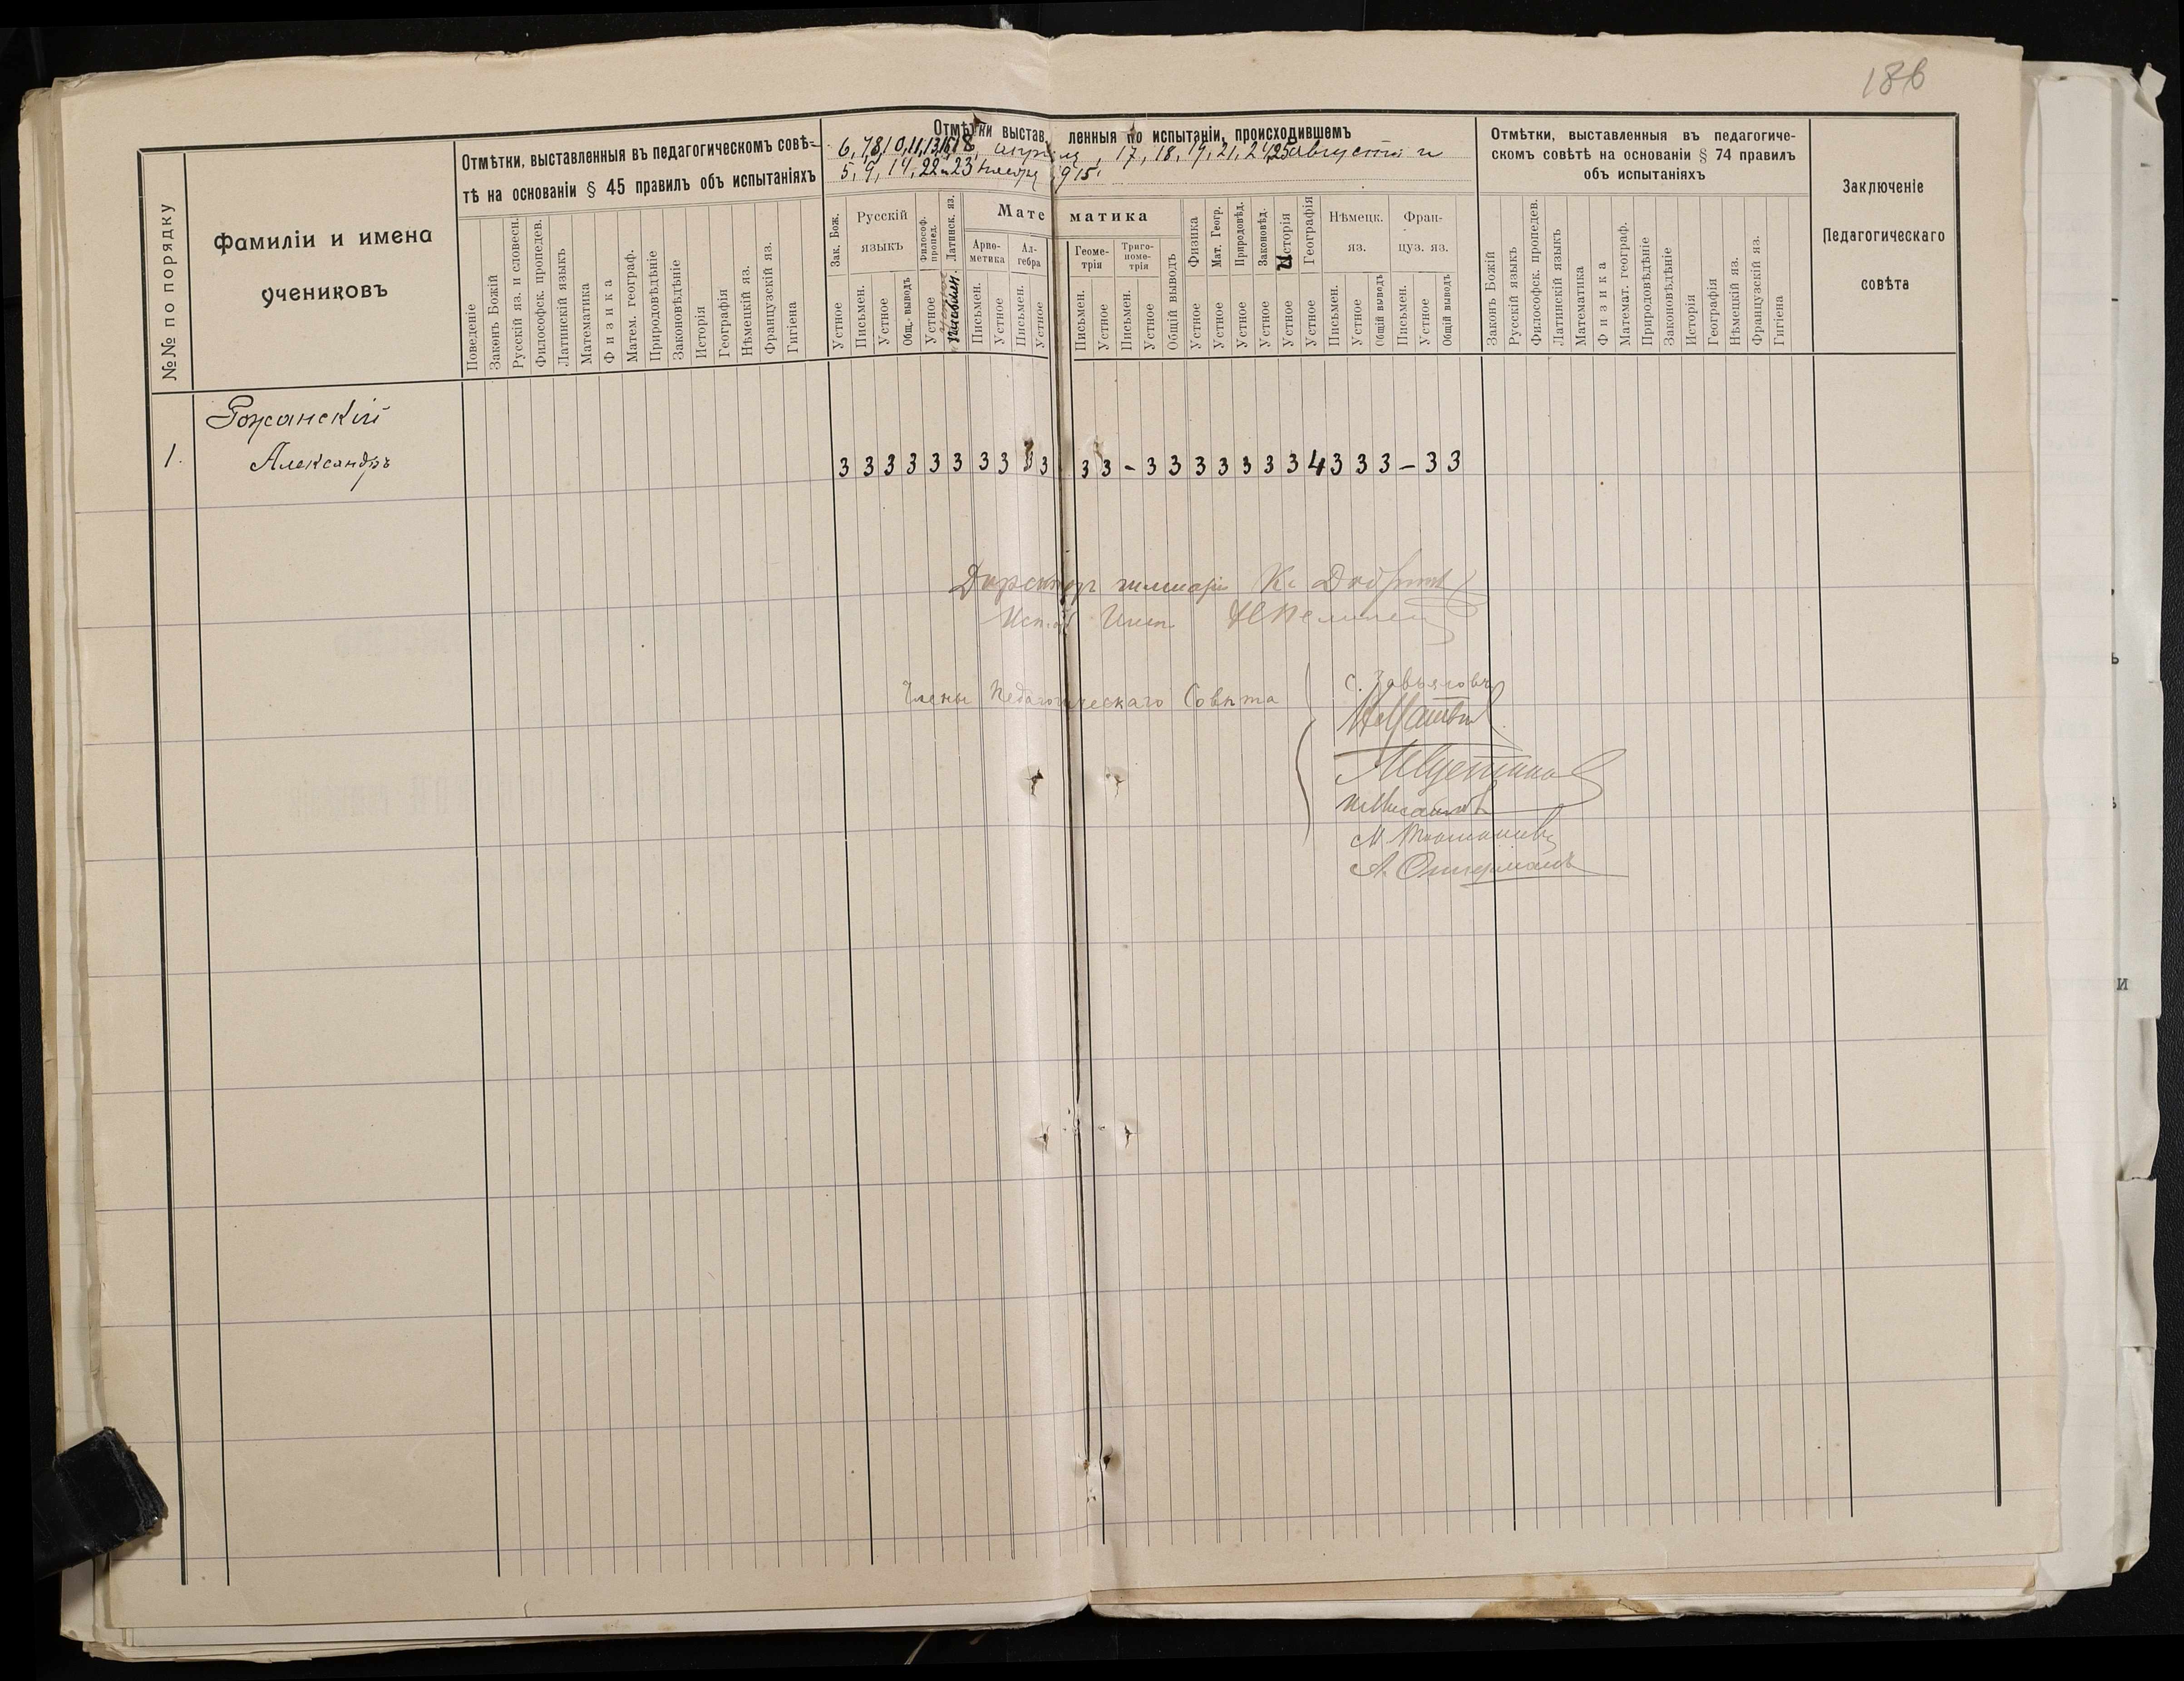 186
№№ по порядку
Фамиліи и имена
учениковъ
Отмѣтки, выставленныя въ педагогическомъ совѣ-
тѣ на основаніи § 45 правилъ объ испытаніяхъ
Поведеніе
Законъ Божій
Русскій яз. и словесн.
Философск. пропедев.
Латинскій языкъ
Математика
Физика
Матем. географ.
Природовѣдѣніе
Законовѣдѣніе
Исторія
Географія
Нѣмецкій яз.
Французскій яз.
Гигіена
Отмѣтки выставленныя по испытаніи, происходившемъ
апрѣля, 17, 18, 19, 21, 24, 25 августа и
5, 9, 14, 22 и 23 ноября 915
Зак. Бож.
Устное
Русскій
языкъ
Письмен.
Устное
Общ. выводъ
Философ.
пропед.
Устное
Латинск. яз.
Письмен.
Математика
Арие-
метика
Письмен.
Устное
Ал-
гебра
Письмен.
Устное
Геоме-
трія
Письмен.
Устное
Триго-
номе-
трія
Письмен.
Устное
Общій выводъ
Физика
Устное
Мат. Геогр.
Устное
Природовѣд.
Устное
Законовѣд.
Устное
Исторія
Устное
Географія
Устное
Нѣмецк.
яз.
Письмен.
Устное
Общій выводъ
Фран-
цуз. яз.
Письмен.
Устное
Общій выводъ
Отмѣтки, выставленныя въ педагогиче-
скомъ совѣтѣ на основаніи § 74 правилъ
объ испытаніяхъ
Законъ Божій
Русскій языкъ
Философск. пропедев.
Латинскій языкъ
Математика
Физика
Математ. географ.
Природовѣдѣніе
Законовѣдѣніе
Исторія
Географія
Нѣмецкій яз.
Французскій яз.
Гигіена
Заключеніе
Педагогическаго
совѣта
Рожанскій
1. Александръ 3 3 3 3 3 3 3 3 3 3 3 3 - 3 3 3 3 3 3 3 4 3 3 3 - 3 3
Директоръ гимназіи К.
Члены Педагогическаго Совѣта
С. Завьяловъ